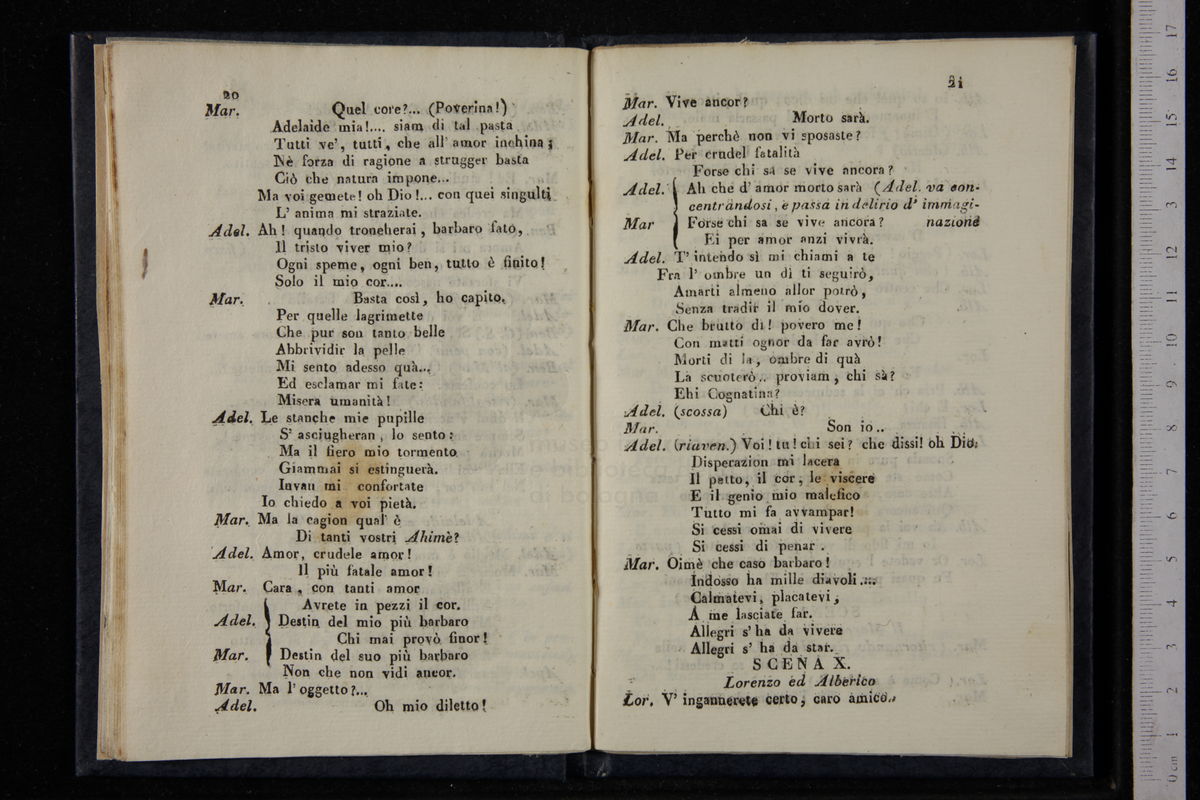 20
Mar. Quel core?... (Poverina!)
Adelaide mia!.... siam di tal pasta
Tutti ve', tutti, che all' amor inchina;
Nè forza di ragione a strugger basta
Ciò che natura impone...
Ma voi gemete! oh Dio!... con quei singulti
L' anima mi straziate.
Adel. Ah! quando troncherai, barbaro fato,
Il tristo viver mio?
Ogni speme, ogni ben, tutto è finito!
Solo il mio cor....
Mar. Basta così, ho capito.
Per quelle lagrimette
Che pur son tanto belle
Abbrividir la pelle
Mi sento adesso quà...
Ed esclamar mi fate:
Misera umanità!
Adel. Le stanche mie pupille
S' asciugheran, lo sento:
Ma il fiero mio tormento
Giammai si estinguerà.
Invan mi confortate
Io chiedo a voi pietà.
Mar. Ma la cagion qual' è
Di tanti vostri Ahimè?
Adel. Amor, crudele amor!
Il più fatale amor!
Mar. Cara, con tanti amor
Avrete in pezzi il cor.
Adel. Destin del mio più barbaro
Chi mai provò finor!
Mar. Destin del suo più barbaro
Non che non vidi ancor.
Mar. Ma l' oggetto?...
Adel. Oh mio diletto!
21
Mar. Vive ancor?
Adel. Morto sarà.
Mar. Ma perchè non vi sposaste?
Adel. Per crudel fatalità
Forse chi sa se vive ancora?
Adel. Ah che d' amor morto sarà (Adel. va con-
centrandosi, e passa in delirio d' immagi-
Mar Forse chi sa se vive ancora? nazione
Ei per amor anzi vivrà.
Adel. T' intendo sì mi chiami a te
Fra l' ombre un dì ti seguirò,
Amarti almeno allor potrò,
Senza tradir il mio dover.
Mar. Che brutto dì! povero me!
Con matti ognor da far avrò!
Morti di la, ombre di quà
La scuoterò.. proviam, chi sà?
Ehi Cognatina?
Adel. (scossa) Chi è?
Mar. Son io..
Adel. (riaven.) Voi! tu! chi sei? che dissi! oh Dio.
Disperazion mi lacera
Il petto, il cor, le viscere
E il genio mio malefico
Tutto mi fa avvampar!
Si cessi omai di vivere
Si cessi di penar.
Mar. Oimè che caso barbaro!
Indosso ha mille diavoli....
Calmatevi, placatevi,
A me lasciate far.
Allegri s' ha da vivere
Allegri s' ha da star.
SCENA X.
Lorenzo ed Alberico
Lor. V' ingannerete certo, caro amico..